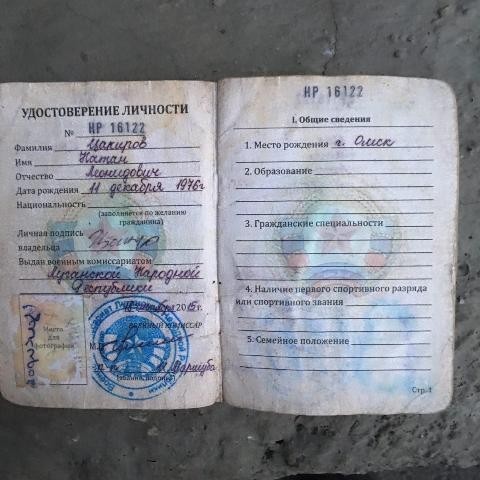 УДОСТОВЕРЕНИЕ ЛИЧНОСТИ
№ НР 16122
Фамилия Цакиров
Имя Натан
Отчество Леонидович
Дата рождения 11 декабря 1976г
Национальность
(заполняется по желанию
гражданина)
Личная подпись
владельца
Выдан военным комиссариатом
Луганской Народной
Республики
2015г.
ВОЕННЫЙ КОМИССАР
М.П.
Место
для
фотографии
(звание, подпись)
НР 16122
I. Общие сведения
1. Место рождения г. Омск
2. Образование
3. Гражданские специальности
4. Наличие первого спортивного разряда
или спортивного звания
5. Семейное положение
Стр. 1